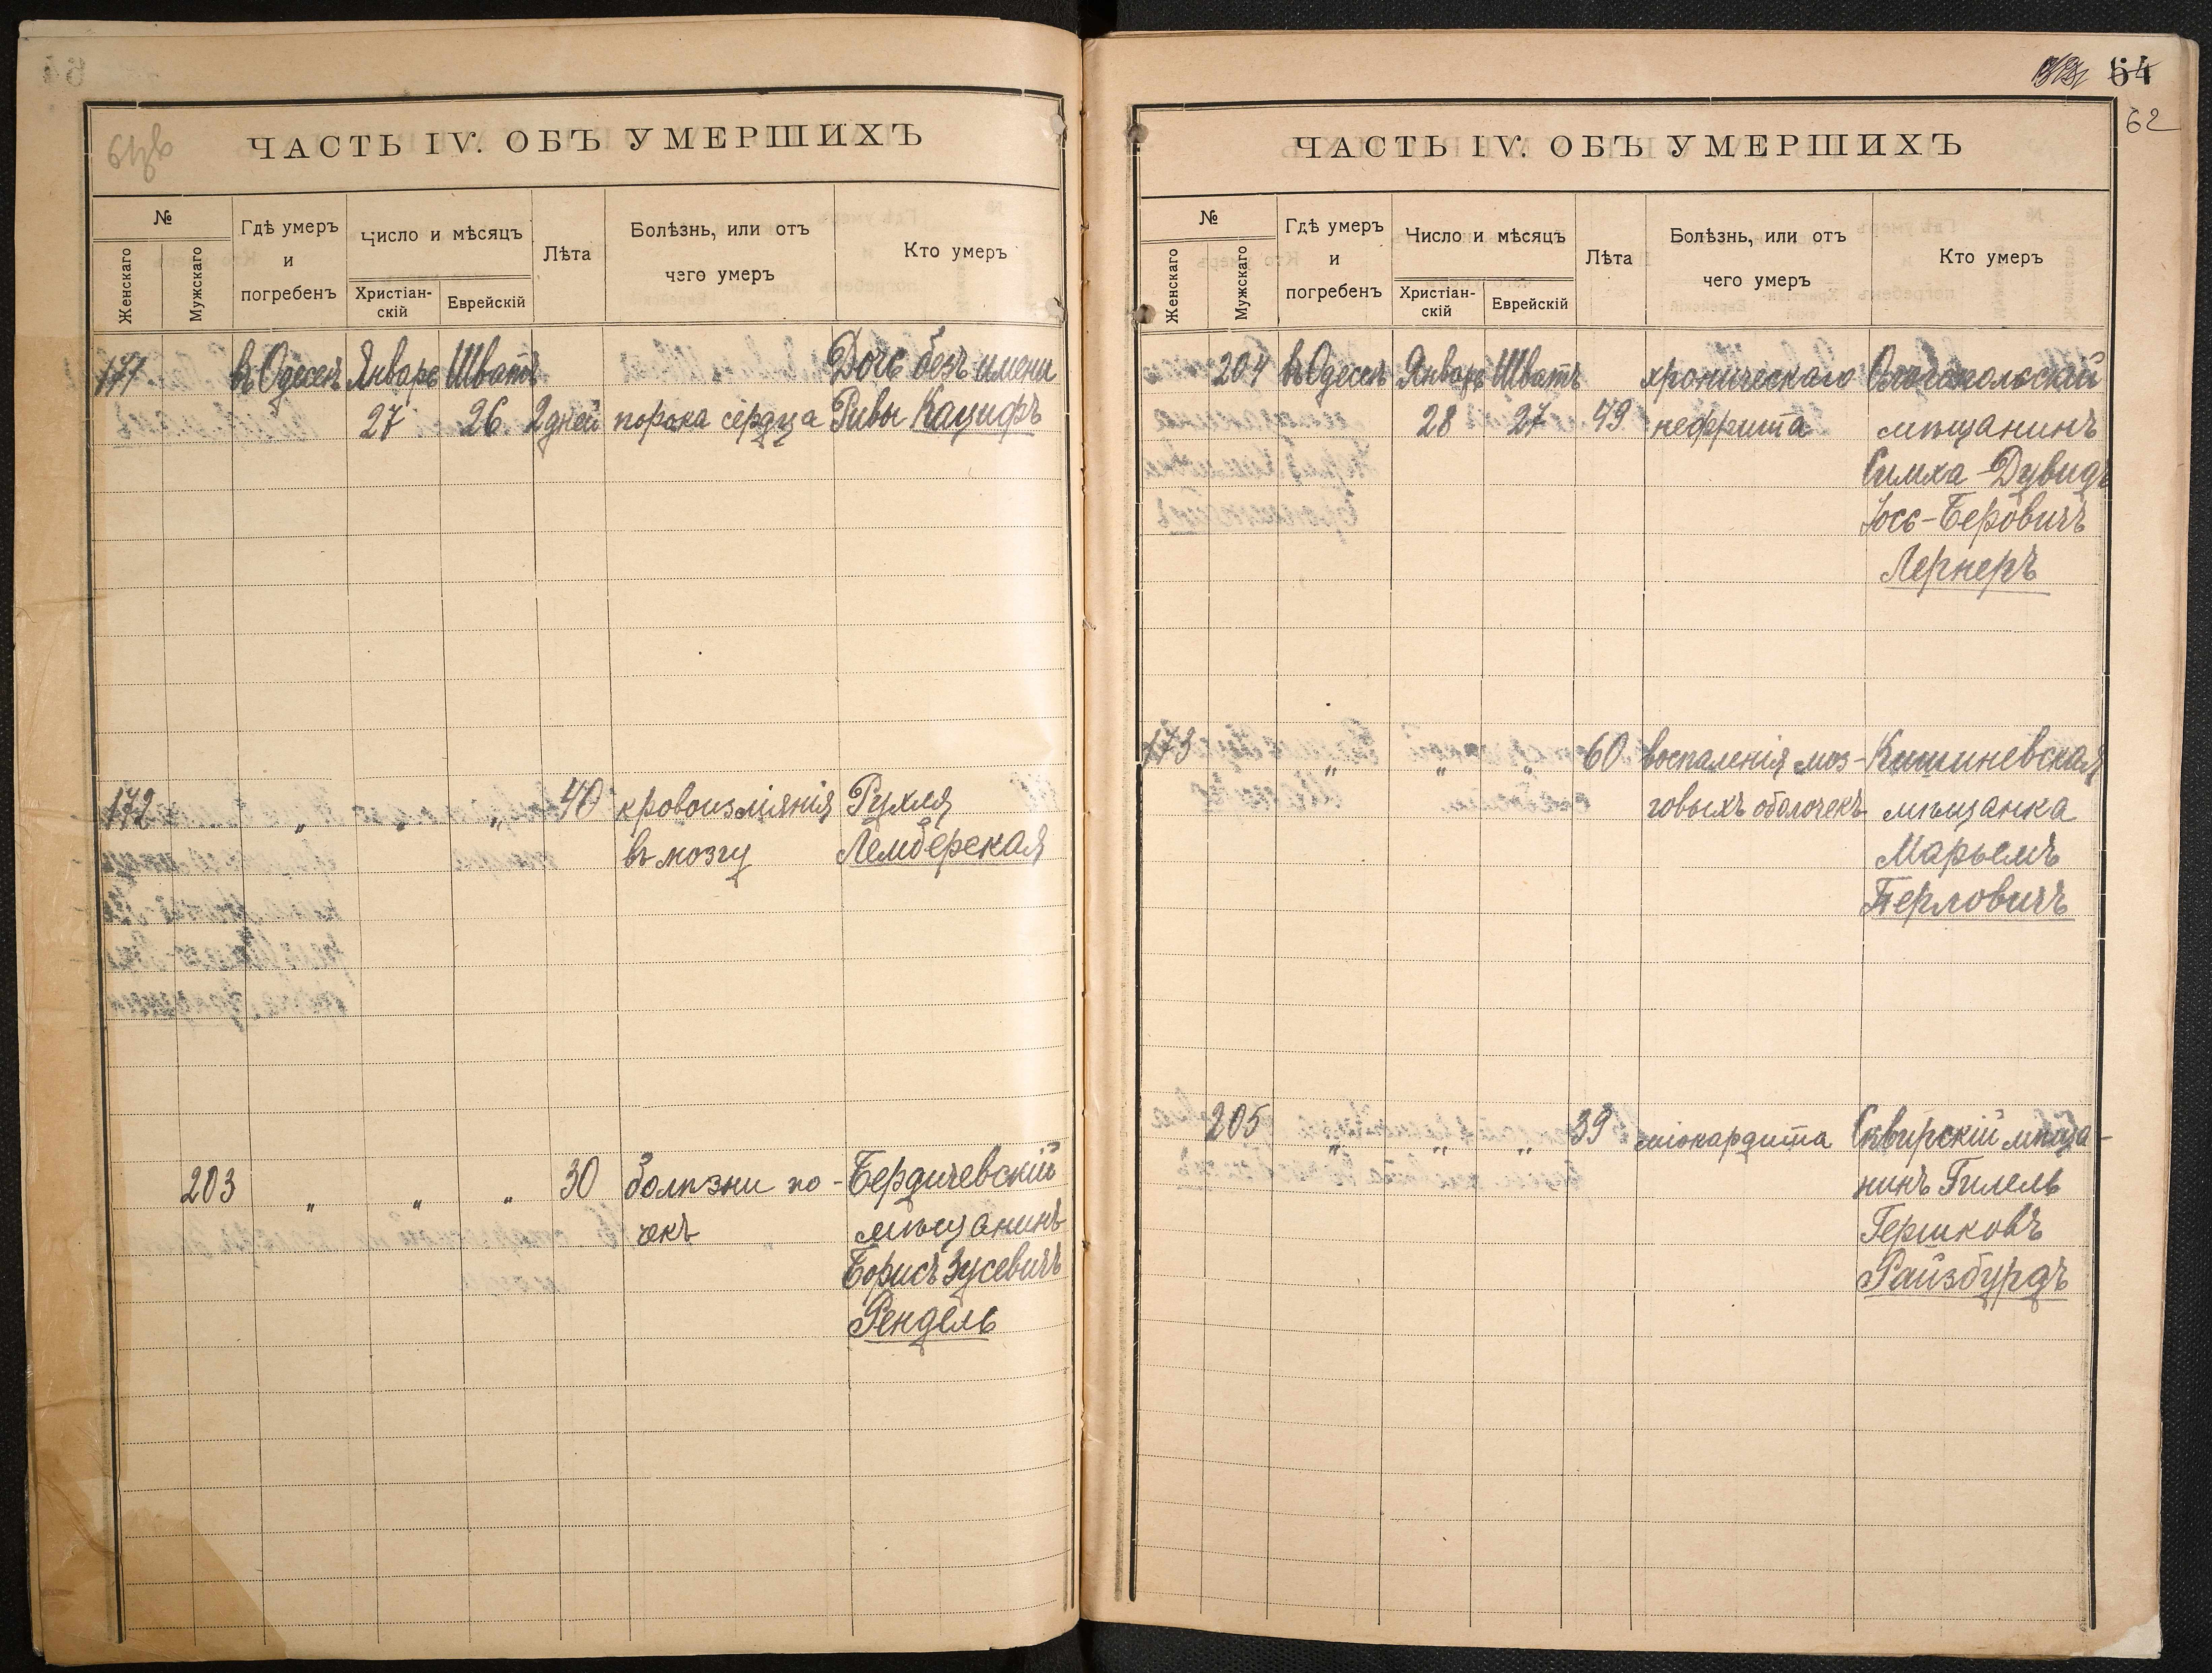 ЧАСТЬ IV. ОБЪ УМЕРШИХЪ
№
Женскаго
Мужскаго
Гдѣ умеръ
и
погребенъ
Число и мѣсяцъ
Христіан-
скій
Еврейскій
Лѣта
Болѣзнь, или отъ
чего умеръ
Кто умеръ
171 въ Одессѣ Январь Шватъ Дочь безъ имени
27 26 2 дней порока сердца Ривы Кацифъ
172 " " " 40 кровоизліянія Рухля
въ мозгу Лемберская
203 " " " 30 болѣзни по- Бердичевскій
чекъ мѣщанинъ
Борисъ Зусевичъ
Рендель
54
62
ЧАСТЬ IV. ОБЪ УМЕРШИХЪ
№
Женскаго
Мужскаго
Гдѣ умеръ
и
погребенъ
Число и мѣсяцъ
Христіан-
скій
Еврейскій
Лѣта
Болѣзнь, или отъ
чего умеръ
Кто умеръ
204 въ Одессѣ Январь Шватъ хроническаго
28 27 49 нефрита мѣщанинъ
Симха-Дувидъ
Іосъ-Беровичъ
Лернеръ
173 " " " 60 воспаленія моз- Кишиневская
говыхъ оболочекъ мѣщанка
Марьемъ
Перловичъ
205 " " " 39 міокардита Сквирскій мѣща-
нинъ Гилель
Гершковъ
Райзбурдъ